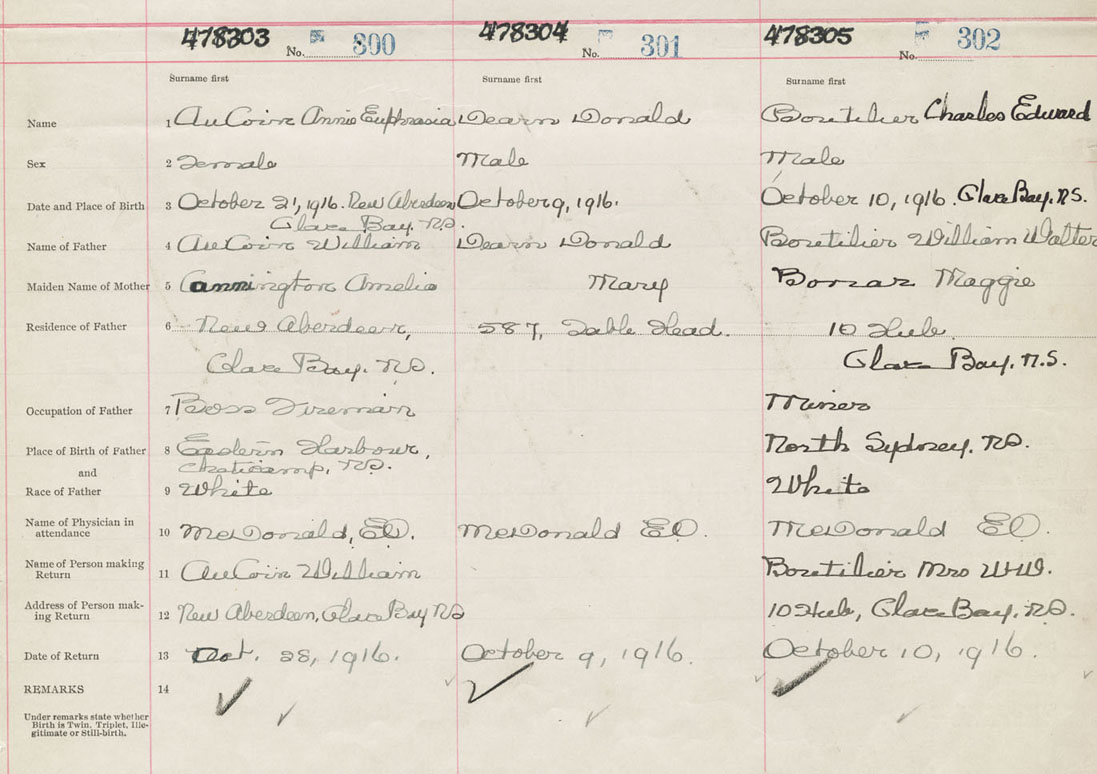 478303 No. 300 478304 No. 301 478305 No. 302
Surname first Surname first Surname first
Name 1 AuCoin Annie Euphrasia Dearn Donald Boutilier Charles Edward
Sex 2 Female Male Male
Date and Place of Birth 3 October 21, 1916. New Aberdeen October 9, 1916. October 10, 1916. Glace Bay. N.S.
Glace Bay. N.S.
Name of Father 4 AuCoin William Dearn Donald Boutilier William Walter
Maiden Name of Mother 5 Cannington Amelia Mary Maggie
Residence of Father 6 New Aberdeen, 587, Table Head. 10 Hub.
Glace Bay. N.S. Glace Bay. N.S.
Occupation of Father 7 Boss Fireman Miner
Place of Birth of Father 8 Eastern Harbour, North Sydney. N.S.
Cheticamp, N.S.
and
Race of Father 9 White White
Name of Physician in
attendance 10 McDonald, EO. McDonald EO. McDonald EO.
Name of Person making
Return 11 AuCoin William Boutilier Mrs WW.
Address of Person mak-
ing Return 12 New Aberdeen, Glace Bay NS 10 Hub, Glace Bay. N.S.
Date of Return 13 Oct. 28, 1916. October 9, 1916. October 10, 1916.
REMARKS 14
Under remarks state whether
Birth is Twin, Triplet, Ille-
gitimate or Still-birth.